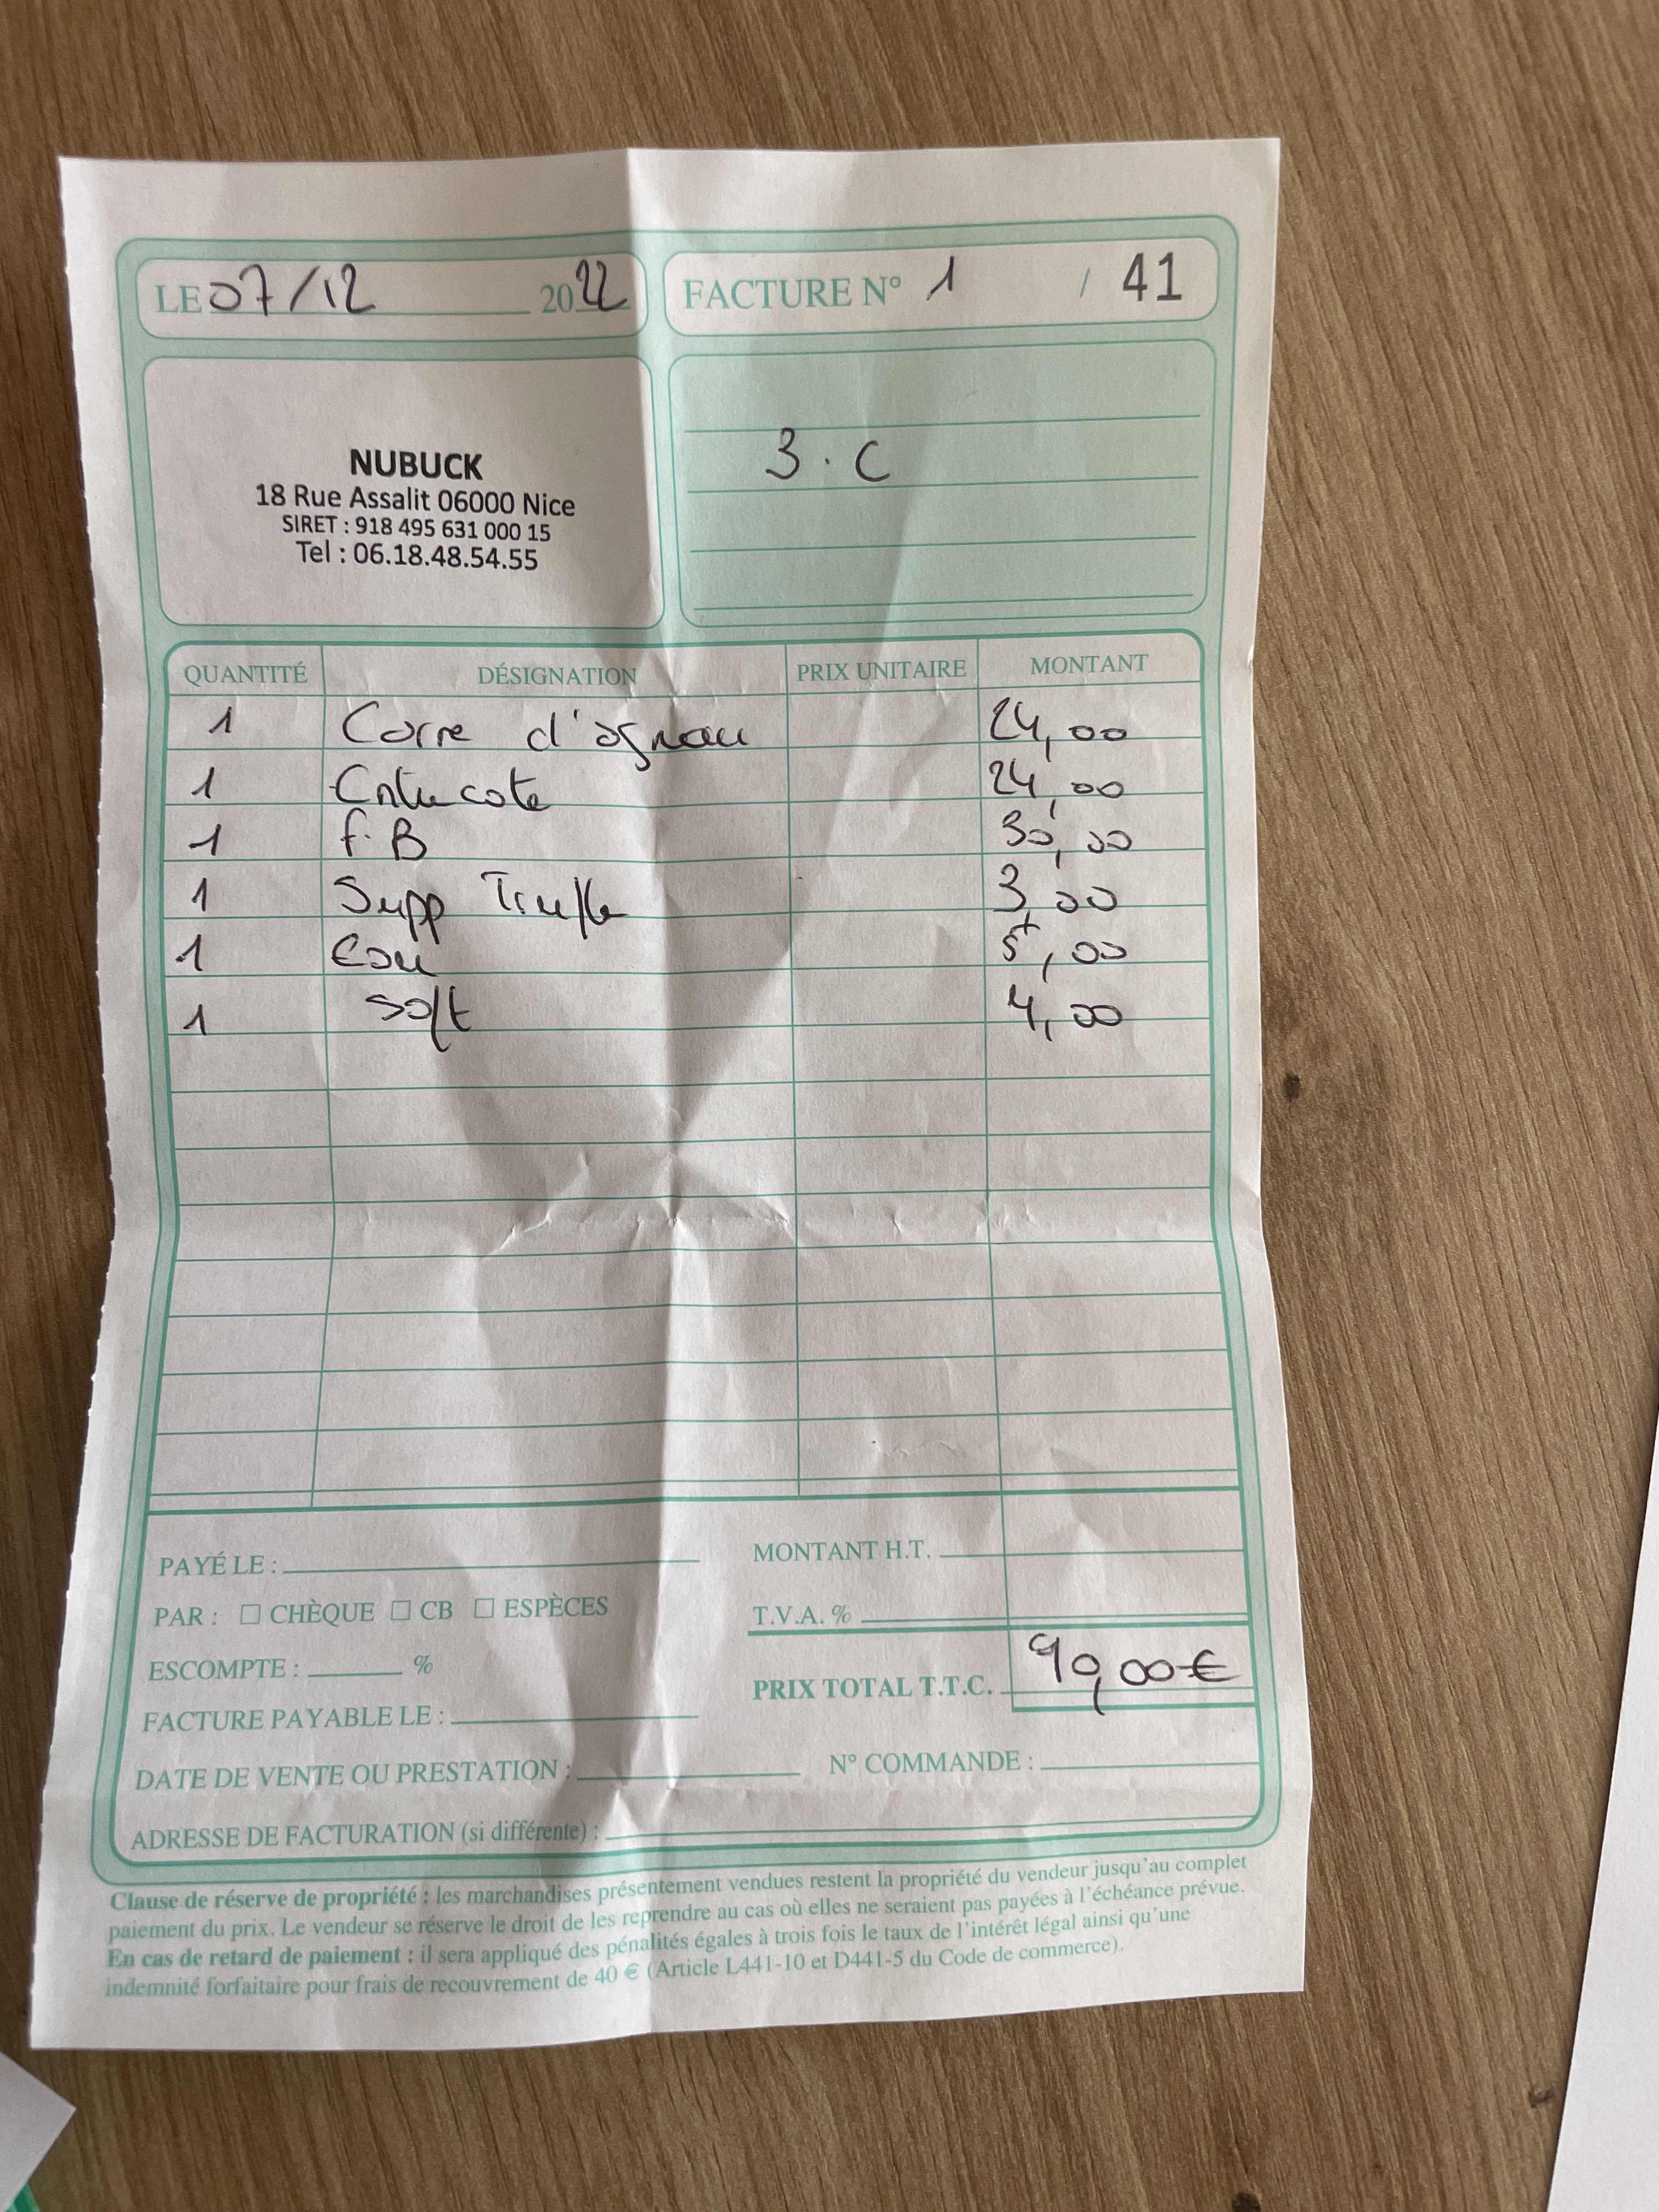 LE 07/12 2022
FACTURE N° 1 / 41
NUBUCK
18 Rue Assalit 06000 Nice
SIRET : 918 495 631 000 15
Tel : 06.18.48.54.55
3 . C
QUANTITÉ DÉSIGNATION PRIX UNITAIRE MONTANT
1 Carre d'agneau 24,00
1 Entrecote 24,00
1 f. B 30,00
1 Supp Truffe 3,00
1 Eau 5,00
1 soft 4,00
PAYÉ LE :
MONTANT H.T.
PAR : ☐ CHÈQUE ☐ CB ☐ ESPÈCES
T.V.A. %
ESCOMPTE : %
PRIX TOTAL T.T.C. 90,00 €
FACTURE PAYABLE LE :
DATE DE VENTE OU PRESTATION : N° COMMANDE :
ADRESSE DE FACTURATION (si différente) :
Clause de réserve de propriété : les marchandises présentement vendues restent la propriété du vendeur jusqu'au complet
paiement du prix. Le vendeur se réserve le droit de les reprendre au cas où elles ne seraient pas payées à l'échéance prévue.
En cas de retard de paiement : il sera appliqué des pénalités égales à trois fois le taux de l'intérêt légal ainsi qu'une
indemnité forfaitaire pour frais de recouvrement de 40 € (Article L441-10 et D441-5 du Code de commerce).